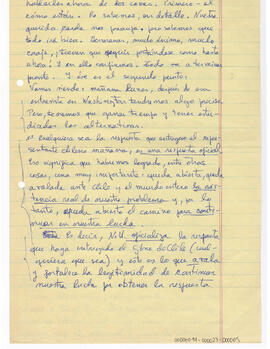 hablarles ahora de dos cosas. Primero - el
cómo están. Lo sabemos, en detalle. Nuestra
querida Carola nos contaba y por sabemos que
todo va bien. Hermanas, mucho ánimo, mucho
coraje, tienen que seguir portándose como hasta
ahora! Y en ello confiamos. Todo va a terminar
pronto. Y ése es el segundo punto.
Vamos viendo: mañana lunes, después de su
entrevista en Washington tendremos algo preciso.
Pero, tenemos que ganar tiempo y tener estu-
diadas las alternativas.
a) Cualquiera sea la respuesta que entregue el repre-
sentante chileno mañana, es una respuesta oficial.
Eso significa que habremos logrado, entre otras
cosas, una muy importante: queda abierta, queda
avalada ante Chile y el mundo entero la exis-
tencia real de nuestro problema y, por lo
tanto, queda abierto el camino para conti-
nuar en nuestra lucha.
Es decir, N.U. oficializa la respuesta
que haya entregado el Gbno de Chile (cual-
quiera que sea) y esto es lo que avala
y fortalece la legitimidad de continuar
nuestra lucha por obtener la respuesta